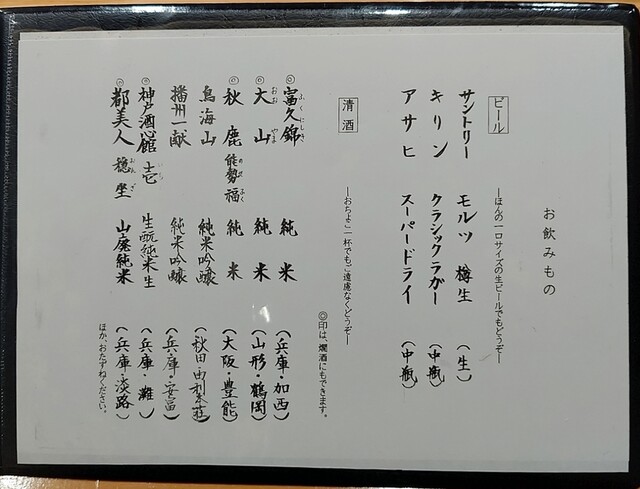 お飲みもの
ビール ―ほんの一口サイズの生ビールでもどうぞ―
サントリー モルツ 樽生 (生)
キリン クラシックラガー (中瓶)
アサヒ スーパードライ (中瓶)
清酒 ―おちょこ一杯でもご遠慮なくどうぞ―
◎印は、燗酒にもできます。
◎富久錦 ふくにしき 純米 (兵庫・加西)
◎大山 おおやま 純米 (山形・鶴岡)
◎秋鹿 能勢福 のせふく 純米 (大阪・豊能)
鳥海山 純米吟醸 (秋田・由利本荘)
播州一献 純米吟醸 (兵庫・安富)
◎神戸酒心館 壱 いち 生酛純米生 (兵庫・灘)
◎都美人 穏坐 おんざ 山廃純米 (兵庫・淡路)
ほか、おたずねください。